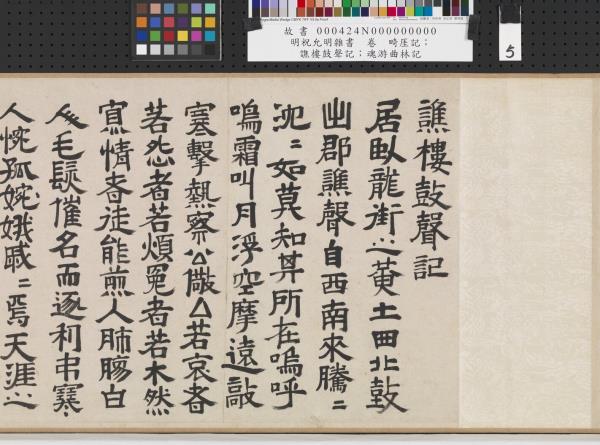 故書 000424N000000000
明祝允明雜書 卷 記；
譙樓鼓聲記；魂游曲林記
5
譙樓鼓聲記
居臥龍街之黃土曲北鼓
出郡譙聲自西南來騰〻
沈〻如莫知其所在嗚呼
鳴霜叫月浮空摩遠敲
寒擊熱察公儆厶若哀者
若怨者若煩冤者若木然
寡情者徒能煎人肺腸白
人毛髮催名而逐利弔寒
人惋孤婉娥戚〻焉天涯之